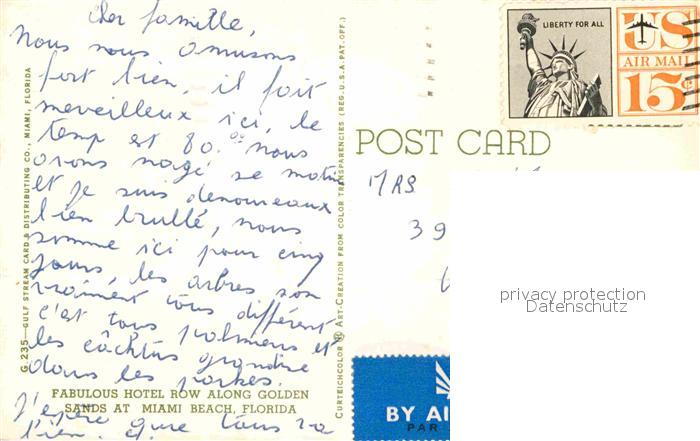 Cher famille,
Nous nous amusons
fort bien, il fait
merveilleux ici, le
temp est 80.° nous
avons nagé se matin
et je suis denouveaux
bien brullé, nous
somme ici pour cinq
jours, les arbres son
vraiment tous différent
c'est tous palmiers et
les câchtus grandre
dans les parkes.
J'espère que tous va
bien. et
G.235—GULF STREAM CARD & DISTRIBUTING CO., MIAMI, FLORIDA
FABULOUS HOTEL ROW ALONG GOLDEN
SANDS AT MIAMI BEACH, FLORIDA
CURTEICHCOLOR ® ART-CREATION FROM COLOR TRANSPARENCIES (REG. U.S.A. PAT. OFF.)
LIBERTY FOR ALL
US
AIR MAIL
15¢
POST CARD
MRS
39
privacy protection
Datenschutz
BY AI
PAR